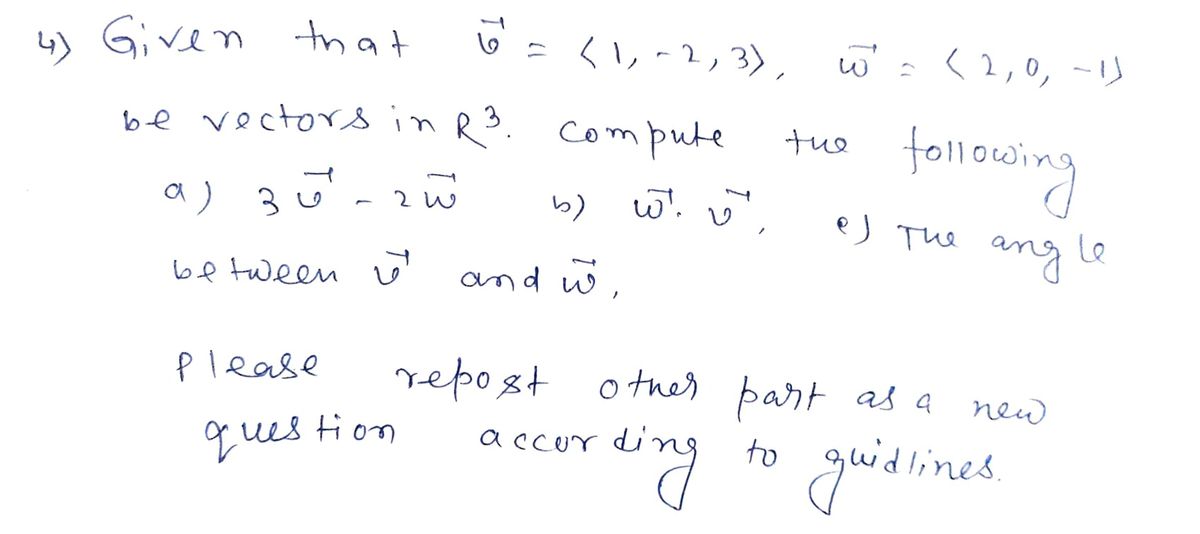 4) Given that v⃗ = ⟨1, -2, 3⟩, w⃗ = ⟨2, 0, -1⟩
be vectors in R³. Compute the following
a) 3v⃗ - 2w⃗ b) w⃗. v⃗, e) The angle
between v⃗ and w⃗,
Please repost other part as a new
question according to guidlines.